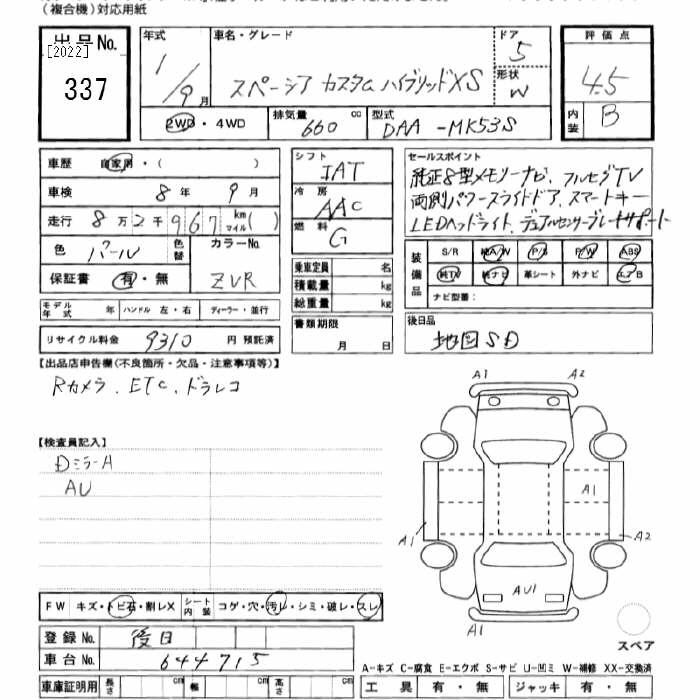 (複合機)対応用紙
出品No.
[2022]
337
年式
1/9月
車名・グレード
スペーシア カスタム ハイブリッドXS
ドア
5
形状
W
評価点
4.5
内装
B
2WD・4WD
排気量
660 cc
型式
DAA-MK53S
車歴 自家用・( )
車検 8年 9月
走行 8万2千967 km マイル( )
色 パール 色替 カラーNo.
ZVR
保証書 有・無
モデル年式 年 ハンドル 左・右 ディーラー・並行
リサイクル料金 9310 円 預託済
シフト
IAT
冷房
AAC
燃料
G
乗車定員 名
積載量 kg
総重量 kg
書類期限
月 日
セールスポイント
純正8型メモリーナビ、フルセグTV
両側パワースライドドア、スマートキー
LEDヘッドライト、デュアルセンサーブレーキサポート
装備品
S/R 純A/W P/S P/W ABS
純TV 純ナビ 革シート 外ナビ エアB
ナビ型番:
後日品
地図SD
【出品店申告欄(不良箇所・欠品・注意事項等)】
Rカメラ、ETC、ドラレコ
【検査員記入】
DミラーA
AU
A1 A2
A1
A1 A2
AU1
A1
スペア
FW キズ・トビ石・割レX シート内装 コゲ・穴・汚レ・シミ・破レ・スレ
登録No. 後日
車台No. 644715
車庫証明用 長さ cm 幅 cm 高さ cm
A-キズ C-腐食 E-エクボ S-サビ U-凹ミ W-補修 XX-交換済
工具 有・無 ジャッキ 有・無